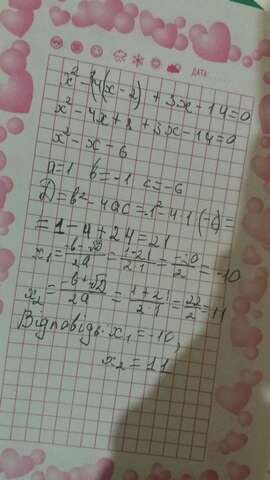 ДАТА
x² - 4(x-2) + 3x - 14 = 0
x² - 4x + 8 + 3x - 14 = 0
x² - x - 6
a=1 b=-1 c=-6
D=b²-4ac=1²-4·1·(-6)=
=1-4+24=21
x₁=(-b-√D)/2a=(1-21)/2·1=-20/2=-10
x₂=(-b+√D)/2a=(1+21)/2·1=22/2=11
Відповідь: x₁=-10,
x₂=11